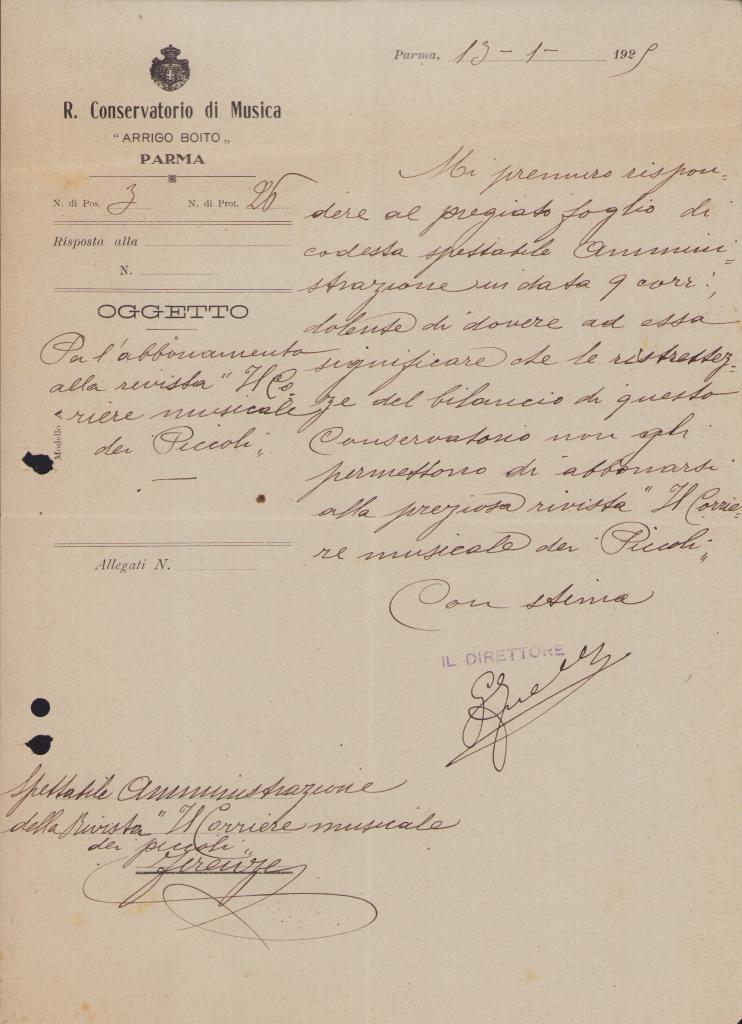 Parma, 13-1- 1925
R. Conservatorio di Musica
"ARRIGO BOITO„
PARMA
N. di Pos. 3 N. di Prot. 26
Risposta alla
N.
OGGETTO
Per l'abbonamento
alla rivista "Il Co-
riere musicale
dei Piccoli„
Modello A
Allegati N.
Mi premuro rispon=
dere al pregiato foglio di
codesta spettabile Ammini=
strazione in data 9 corr:,
dolente di dovere ad essa
significare che le ristrettez=
ze del bilancio di questo
Conservatorio non gli
permettono di abbonarsi
alla preziosa rivista "Il Corrie=
re musicale dei Piccoli„
Con stima
IL DIRETTORE
Spettabile Amministrazione
della Rivista "Il Corriere musicale
dei piccoli„
Firenze